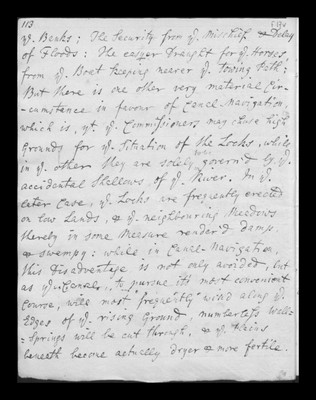 113
yͤ. Banks; The Security from yͤ. Mischief & Delay
of Floods; The easyer Draught for yͤ. Horses
from yͤ. Boat keeping nearer yͤ. towing Path;
But there is one other very material Cir-
-cumstance in favour of Canal-Navigation,
which is, yt. yͤ. Commissioners may chuse high
Grounds for yͤ. Situation of the Locks, while
in yͤ. other they are solely govern'd by yͤ.
accidental Shallows of yͤ. River. In yͤ.
later Case, yͤ. Locks are frequently erected
on low Lands, & yͤ. neighbouring Meadows
thereby in some Measure render'd damp
& swampy: while in Canal-Navigation,
this Disadvantage is not only avoided, but
as yͤ. Canals, to pursue its most convenient
Course, will most frequently wind along yͤ.
Edges of yͤ. rising Ground, numberless Land-
-Springs will be cut through, & yͤ. Plains
beneath become actually dryer & more fertile.